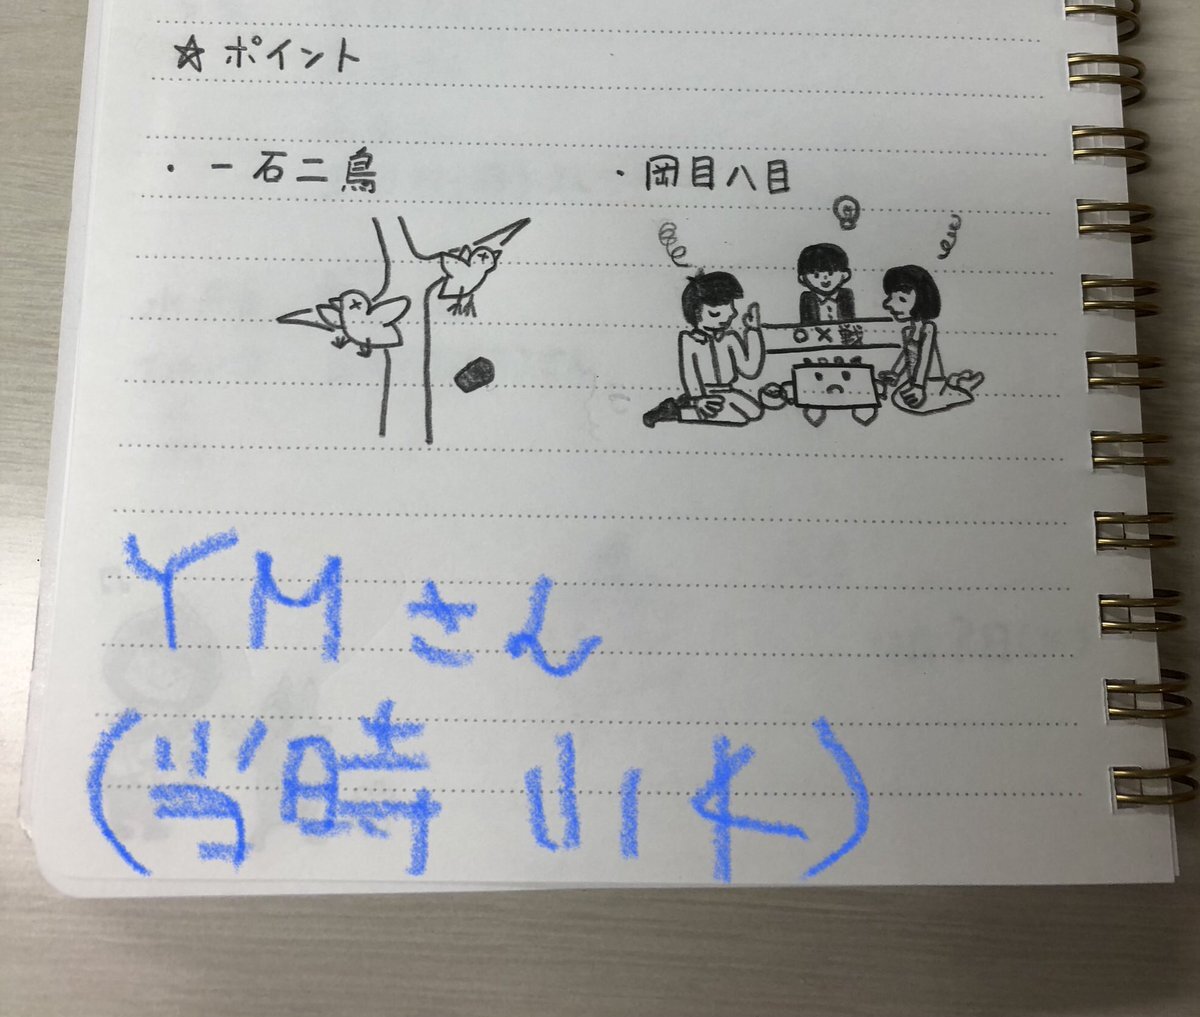 ☆ ポイント
・一石二鳥
・岡目八目
○×戦
YMさん
(当時 小 )